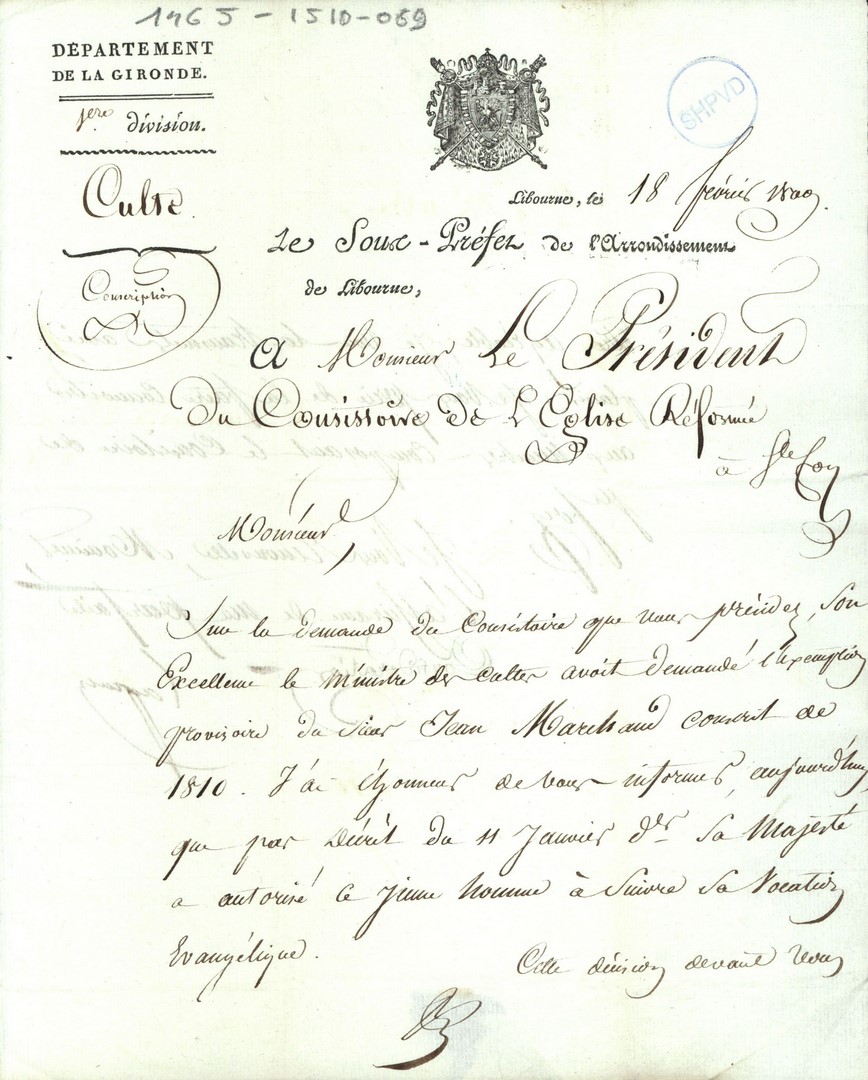 1465-1510-069
DÉPARTEMENT
DE LA GIRONDE.
SHPVD
1ère division.
Culte
Libourne, le 18 février 1809.
Le Sous-Préfet de l'Arrondissement
de Libourne,
Conscription
A Monsieur Le Président
Du Consistoire De L'Eglise Réformée
à Ste Foy
Monsieur,
Sur la demande du Consistoire que vous présidez, Son
Excellence le Ministre des cultes avoit demandé l'exemption
provisoire du sieur Jean Marchand conscrit de
1810. J'ai l'honneur de vous informer, aujourd'huy,
que par Décrèt du 11 Janvier der Sa Majesté
a autorisé ce jeune homme à suivre sa Vocation
Evangélique.
Cette décision devant vous